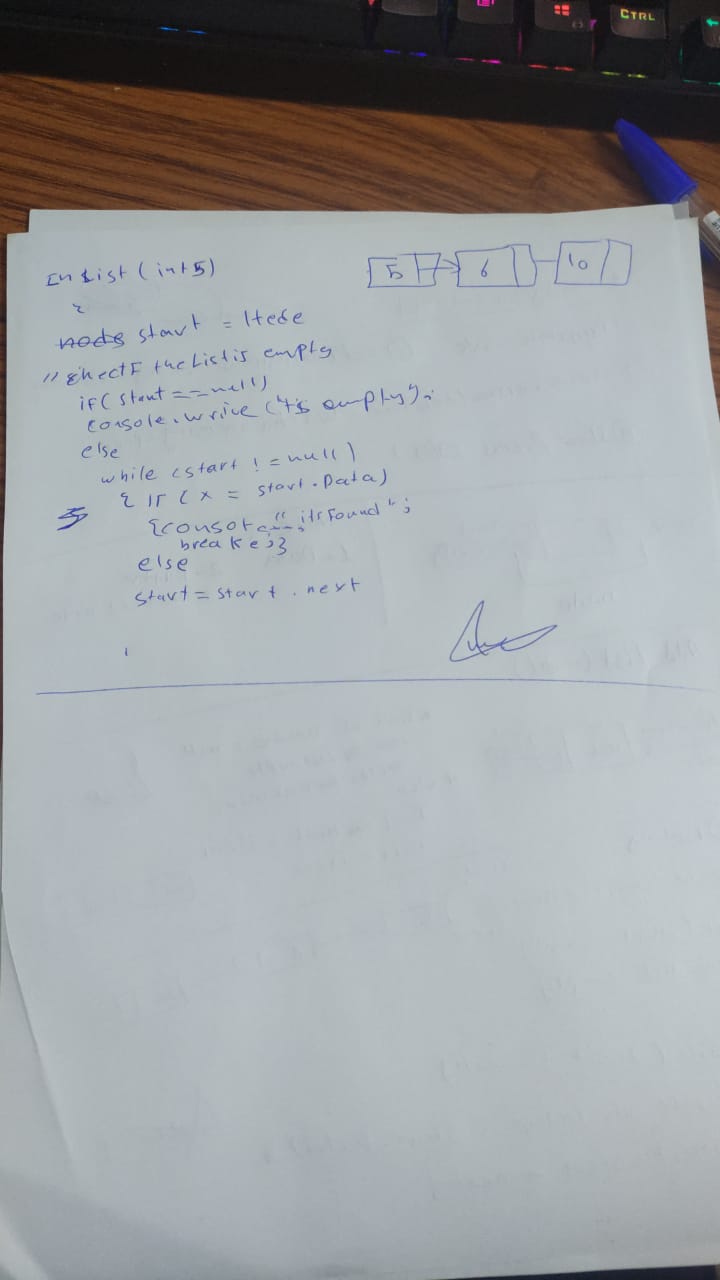 CTRL
In List (int 5)
{
node start = Head
// check if the List is empty
if (start == null)
console.write ("its empty");
else
while (start != null)
{ if (x = start.Data)
{console "its found";
break;}
else
start = start.next
5 6 10